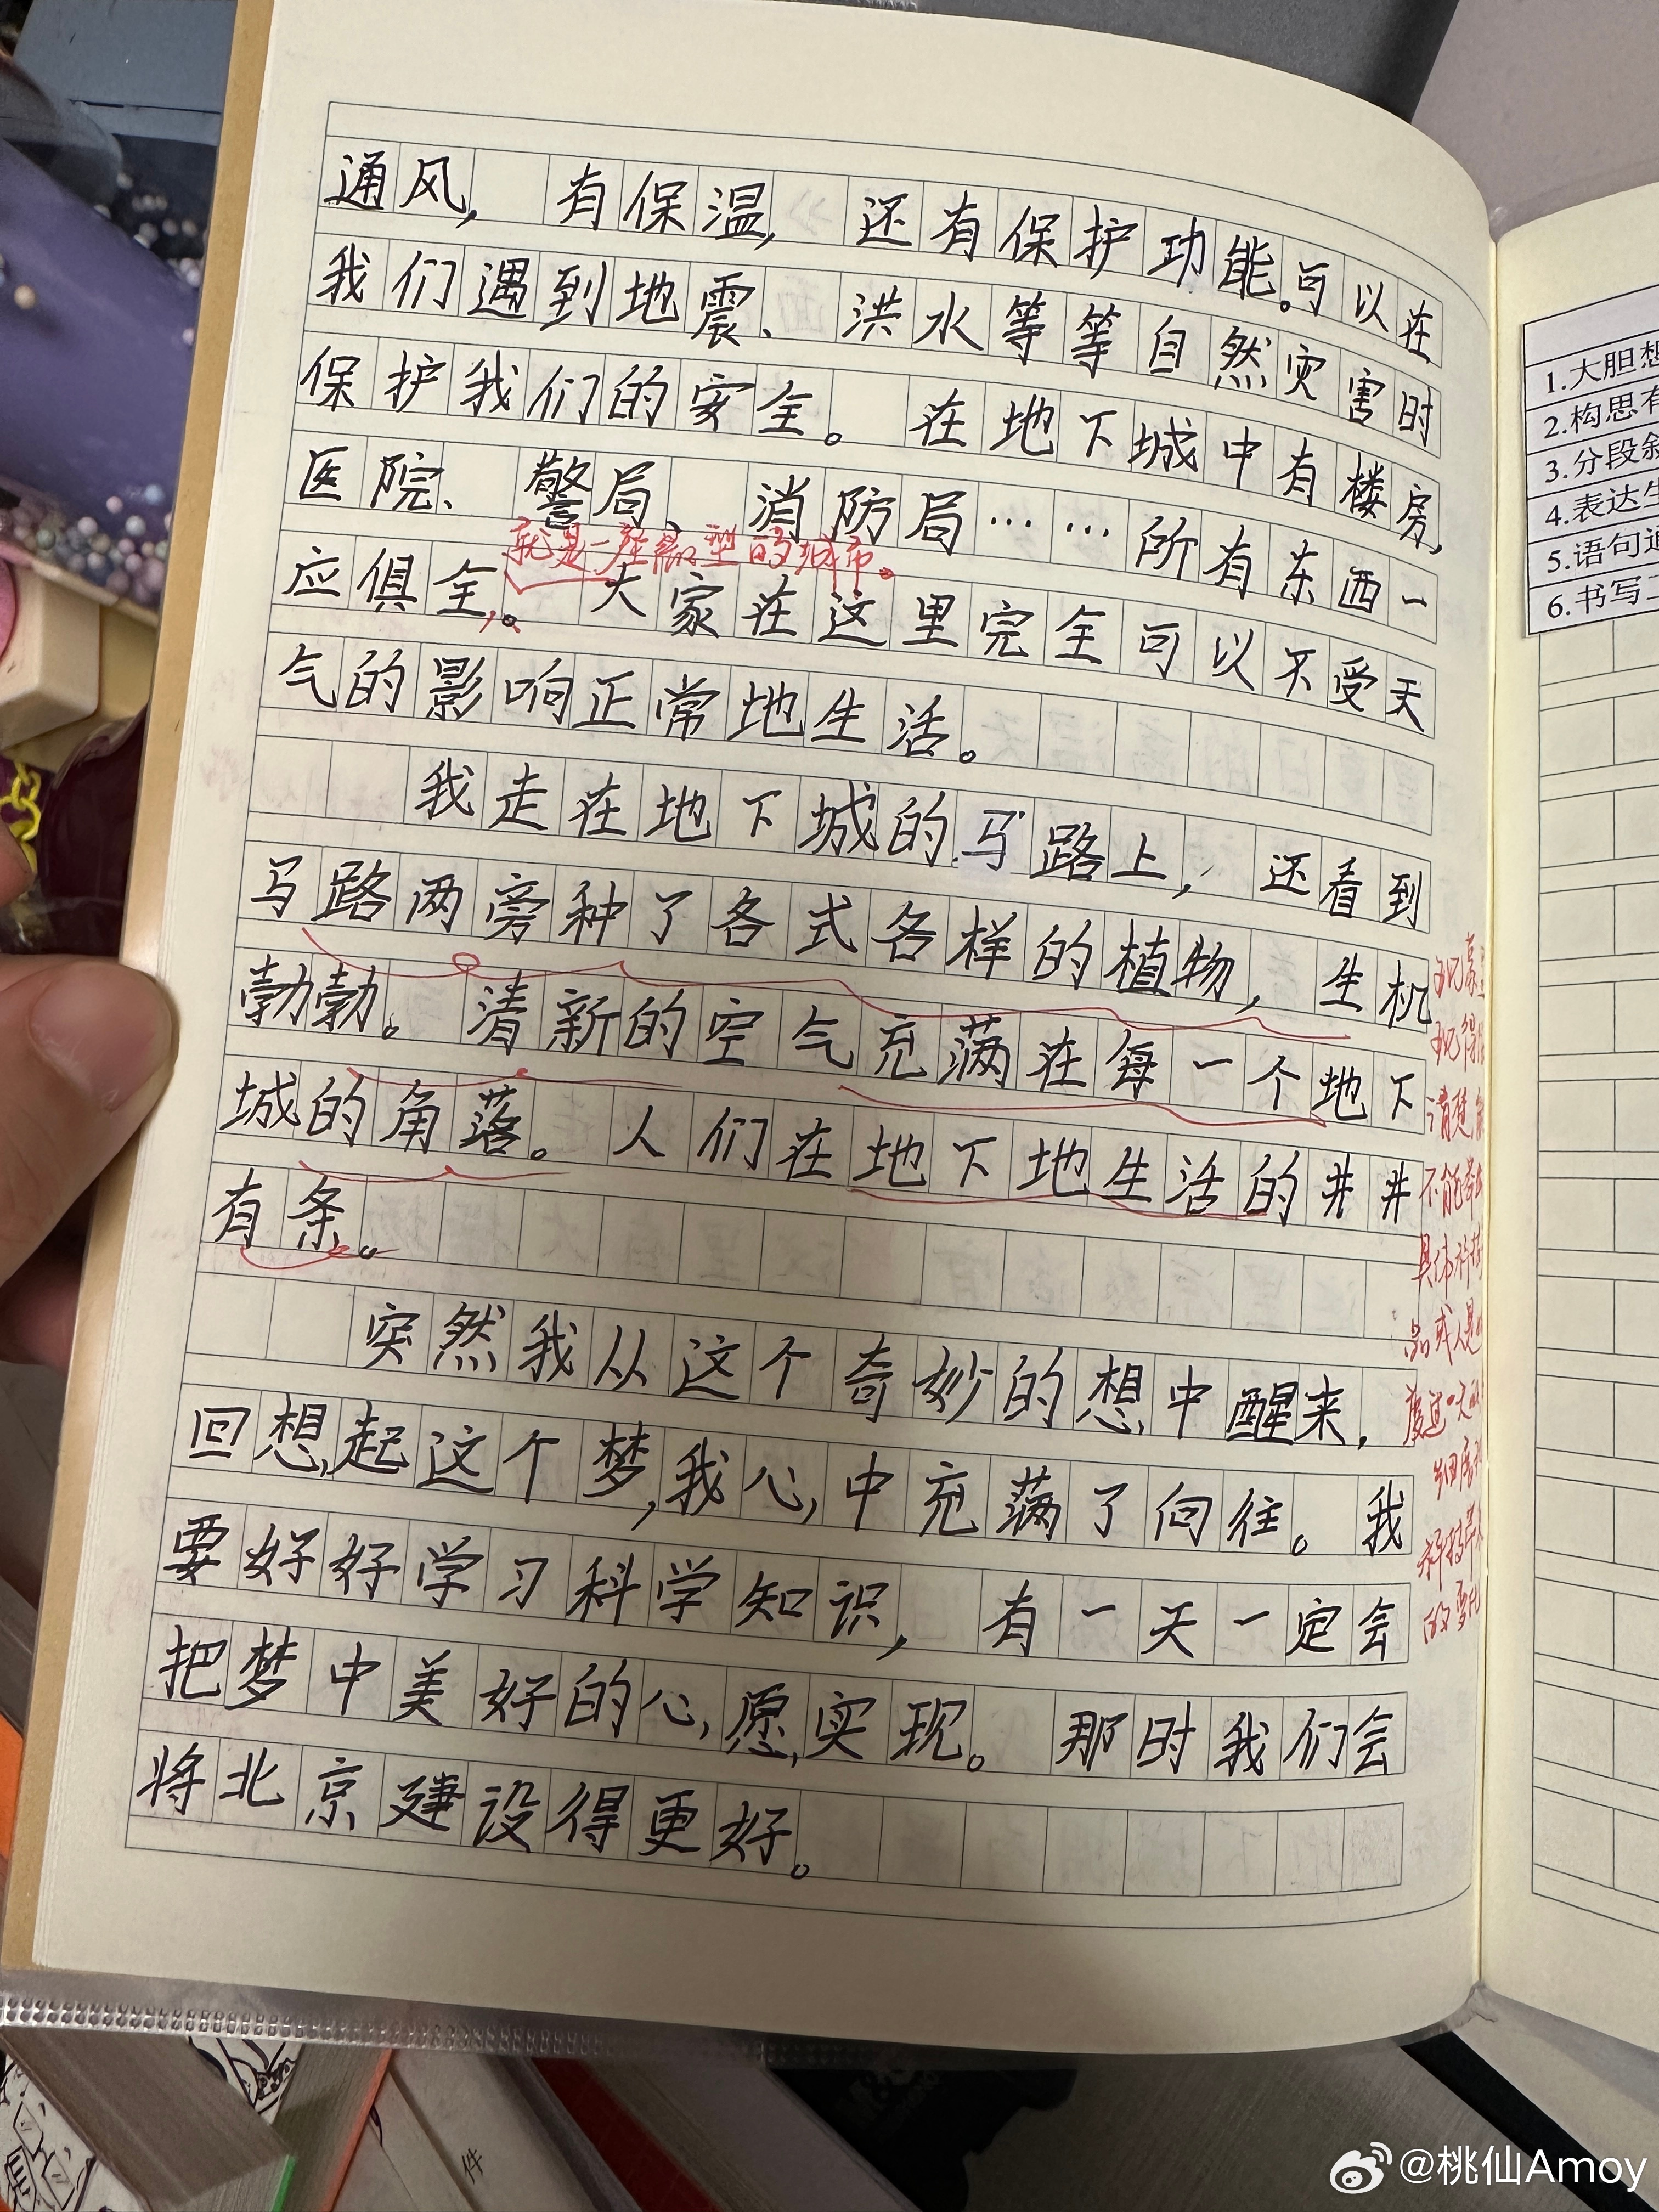 通风，有保温，还有保护功能。可以在
我们遇到地震、洪水等等自然灾害时
保护我们的安全。在地下城中有楼房，
医院、警局、消防局……所有东西一
就是一座新型的城市。
应俱全。大家在这里完全可以不受天
气的影响正常地生活。
我走在地下城的马路上，还看到
马路两旁种了各式各样的植物，生机
勃勃。清新的空气充满在每一个地下
城的角落。人们在地下地生活的井井
有条。
突然我从这个奇妙的想中醒来，
回想起这个梦，我心中充满了向往。我
要好好学习科学知识，有一天一定会
把梦中美好的心愿实现。那时我们会
将北京建设得更好。
清楚
不能
具体
品或人是
度过一天
细
科技
的
1.大胆想
2.构思有
3.分段叙
4.表达生
5.语句通
6.书写工
件
@桃仙Amoy